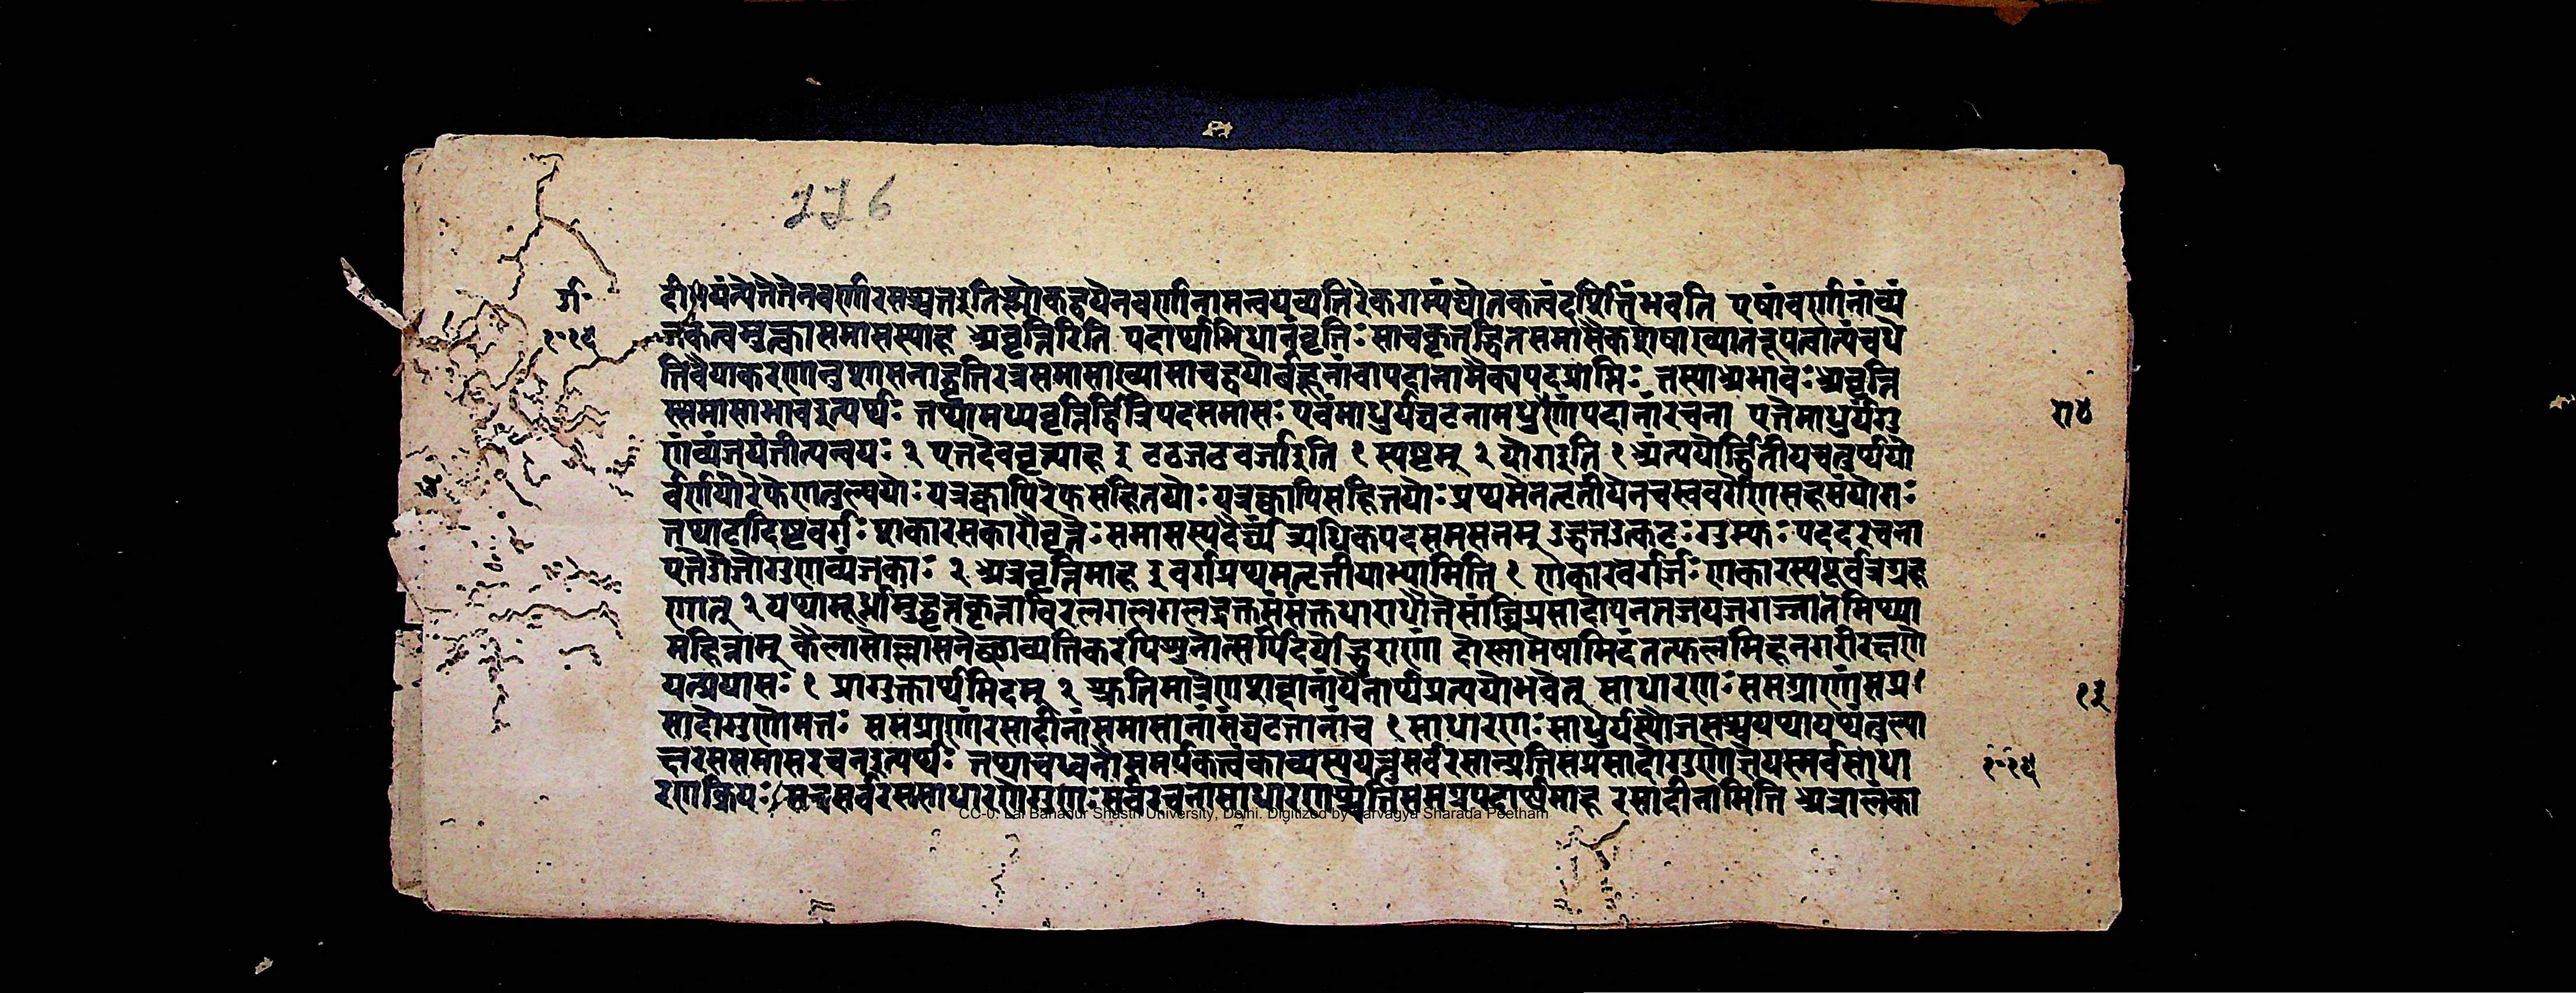 116
दी॥यंत्येतेतेनवर्णारसश्च्युतइतिश्लोकद्वयेनवर्णानामन्वयव्यतिरेकगम्यंद्योतकत्वंदर्शितंभवति एषांवर्णानांव्यं
जकत्वमुत्क्वासमासस्याह अवृत्तिरिति पदार्थाभिधानंवृत्तिः साचकृत्तद्धितसमासैकशेषाख्यातरूपत्वात्पंचधे
तिवैयाकरणानुशासनाद्वृत्तिरत्रसमासाख्यासाचद्वयोर्बहूनांवापदानामैकपद्यप्राप्तिः तस्याअभावःअवृत्ति
स्समासाभावइत्यर्थः तथामध्यवृत्तिर्द्वित्रिपदसमासः एवंमाधुर्यवटनामधुराणांपदानांरचना एतेमाधुर्यगु
णंव्यंजयंतीत्यन्वयः २ एतदेववृत्त्याह इ टठडढवर्जाइति १ स्पष्टम् २ योगइति १ अंत्ययोर्द्वितीयचतुर्थयो
र्वर्णयोरेफेणतुल्ययोः यत्रक्वापिरेफसहितयोः यत्रक्वापिसहितयोः प्रथमेनतृतीयेनचस्ववर्गेणसहसंयोगः
तथाटादिष्टवर्गः शकारसकारौवृत्तेः समासस्यदैर्घ्यं अधिकपदसमसनम् उद्धतउत्कटः गुम्फः पददरचना
एतेगैजोगुणव्यंजकाः २ अत्रवृत्तिमाह इ वर्गप्रथमतृतीयाभ्यामिति १ णकारवर्गर्जः णकारस्यपूर्वत्रग्रह
णात् २ यथामूर्ध्नामुद्वृत्तकृत्ताविरलगलगलद्रक्तसंसक्तधाराधौतेसांघ्रिप्रसादोपनतजयजगज्जातमिथ्या
महिन्नाम् कैलासोल्लासनेच्छाव्यतिकरपिशुनोत्सर्पिदर्पोद्धुराणां दोस्नामेषामिदंतत्फलमिहनगरीरक्षणे
यत्प्रयासः १ प्रागुक्तार्थमिदम् २ श्रुतिमात्रेणशब्दानांयेनार्थप्रत्ययोभवेत् साधारणः समग्राणांसप्र
सादोगुणोमतः समग्राणांरसादीनांसमासानांसंघटनानांच १ साधारणः माधुर्यस्यौजसश्चयथायथंतुल्या
क्षरसमासरचनइत्यर्थः तथाचध्वनौ समर्पकत्वंकाव्यस्ययत्तुसर्वरसान्प्रतिसप्रसादोगुणोज्ञेयस्सर्वसाधा
रणक्रियः सचसर्वरससाधारणोगुणः सर्वरचनासाधारणश्चेतिसमग्रपदार्थमाह रसादीनामिति अत्रालंका
CC-0. Lal Bahadur Shastri University, Delhi. Digitized by Sarvagya Sharada Peetham